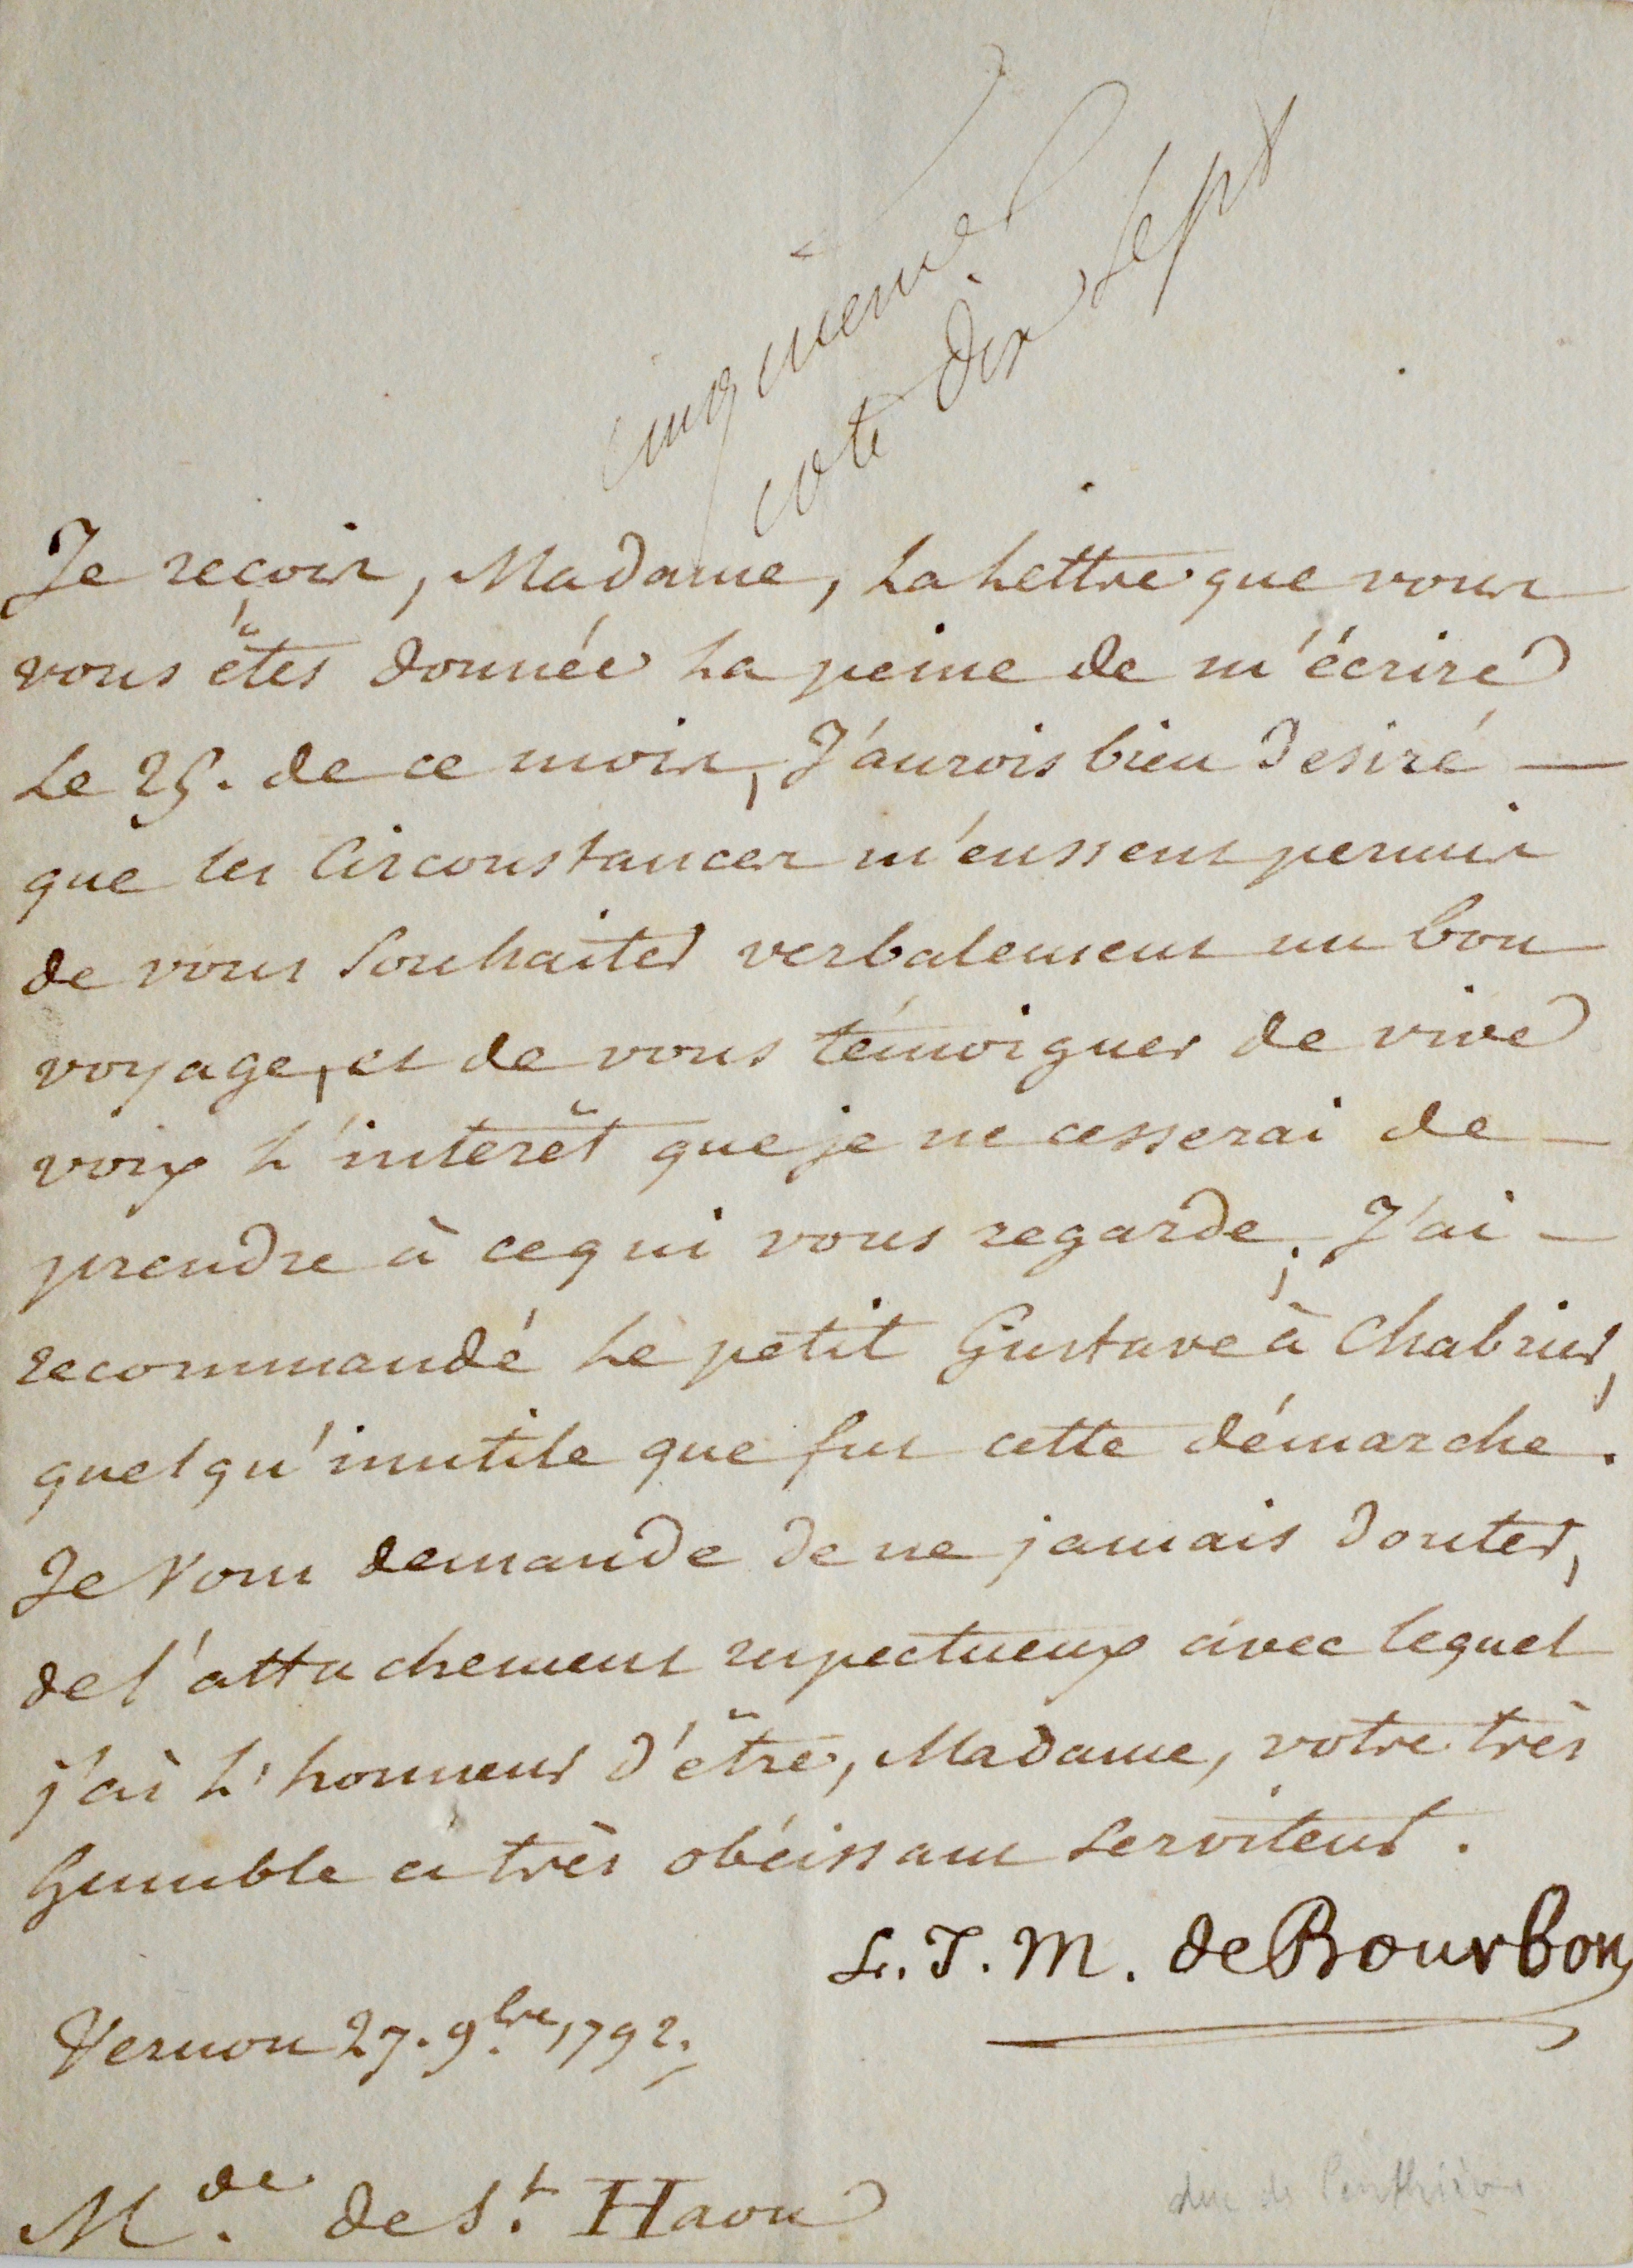 cinquième
cote dix sept
Je reçois, Madame, La Lettre que vous
vous êtes donnée La peine de m'écrire
Le 25. de ce mois, J'aurois bien desiré —
que les Circonstances m'eussent permis
de vous Souhaiter verbalement un bon
voyage, et de vous témoigner de vive
voix L'interêt que je ne cesserai de —
prendre à ce qui vous regarde; J'ai —
recommandé Le petit Gustave à Chabrier,
quelqu'inutile que fut cette démarche.
Je Vous demande de ne jamais douter,
de l'attachement respectueux avec lequel
j'ai L'honneur d'être, Madame, votre très
humble et très obéissant Serviteur.
L. J. M. de Bourbon
Vernon 27. 9.bre 1792.
M.de de S.t Haon
duc de Penthièvre